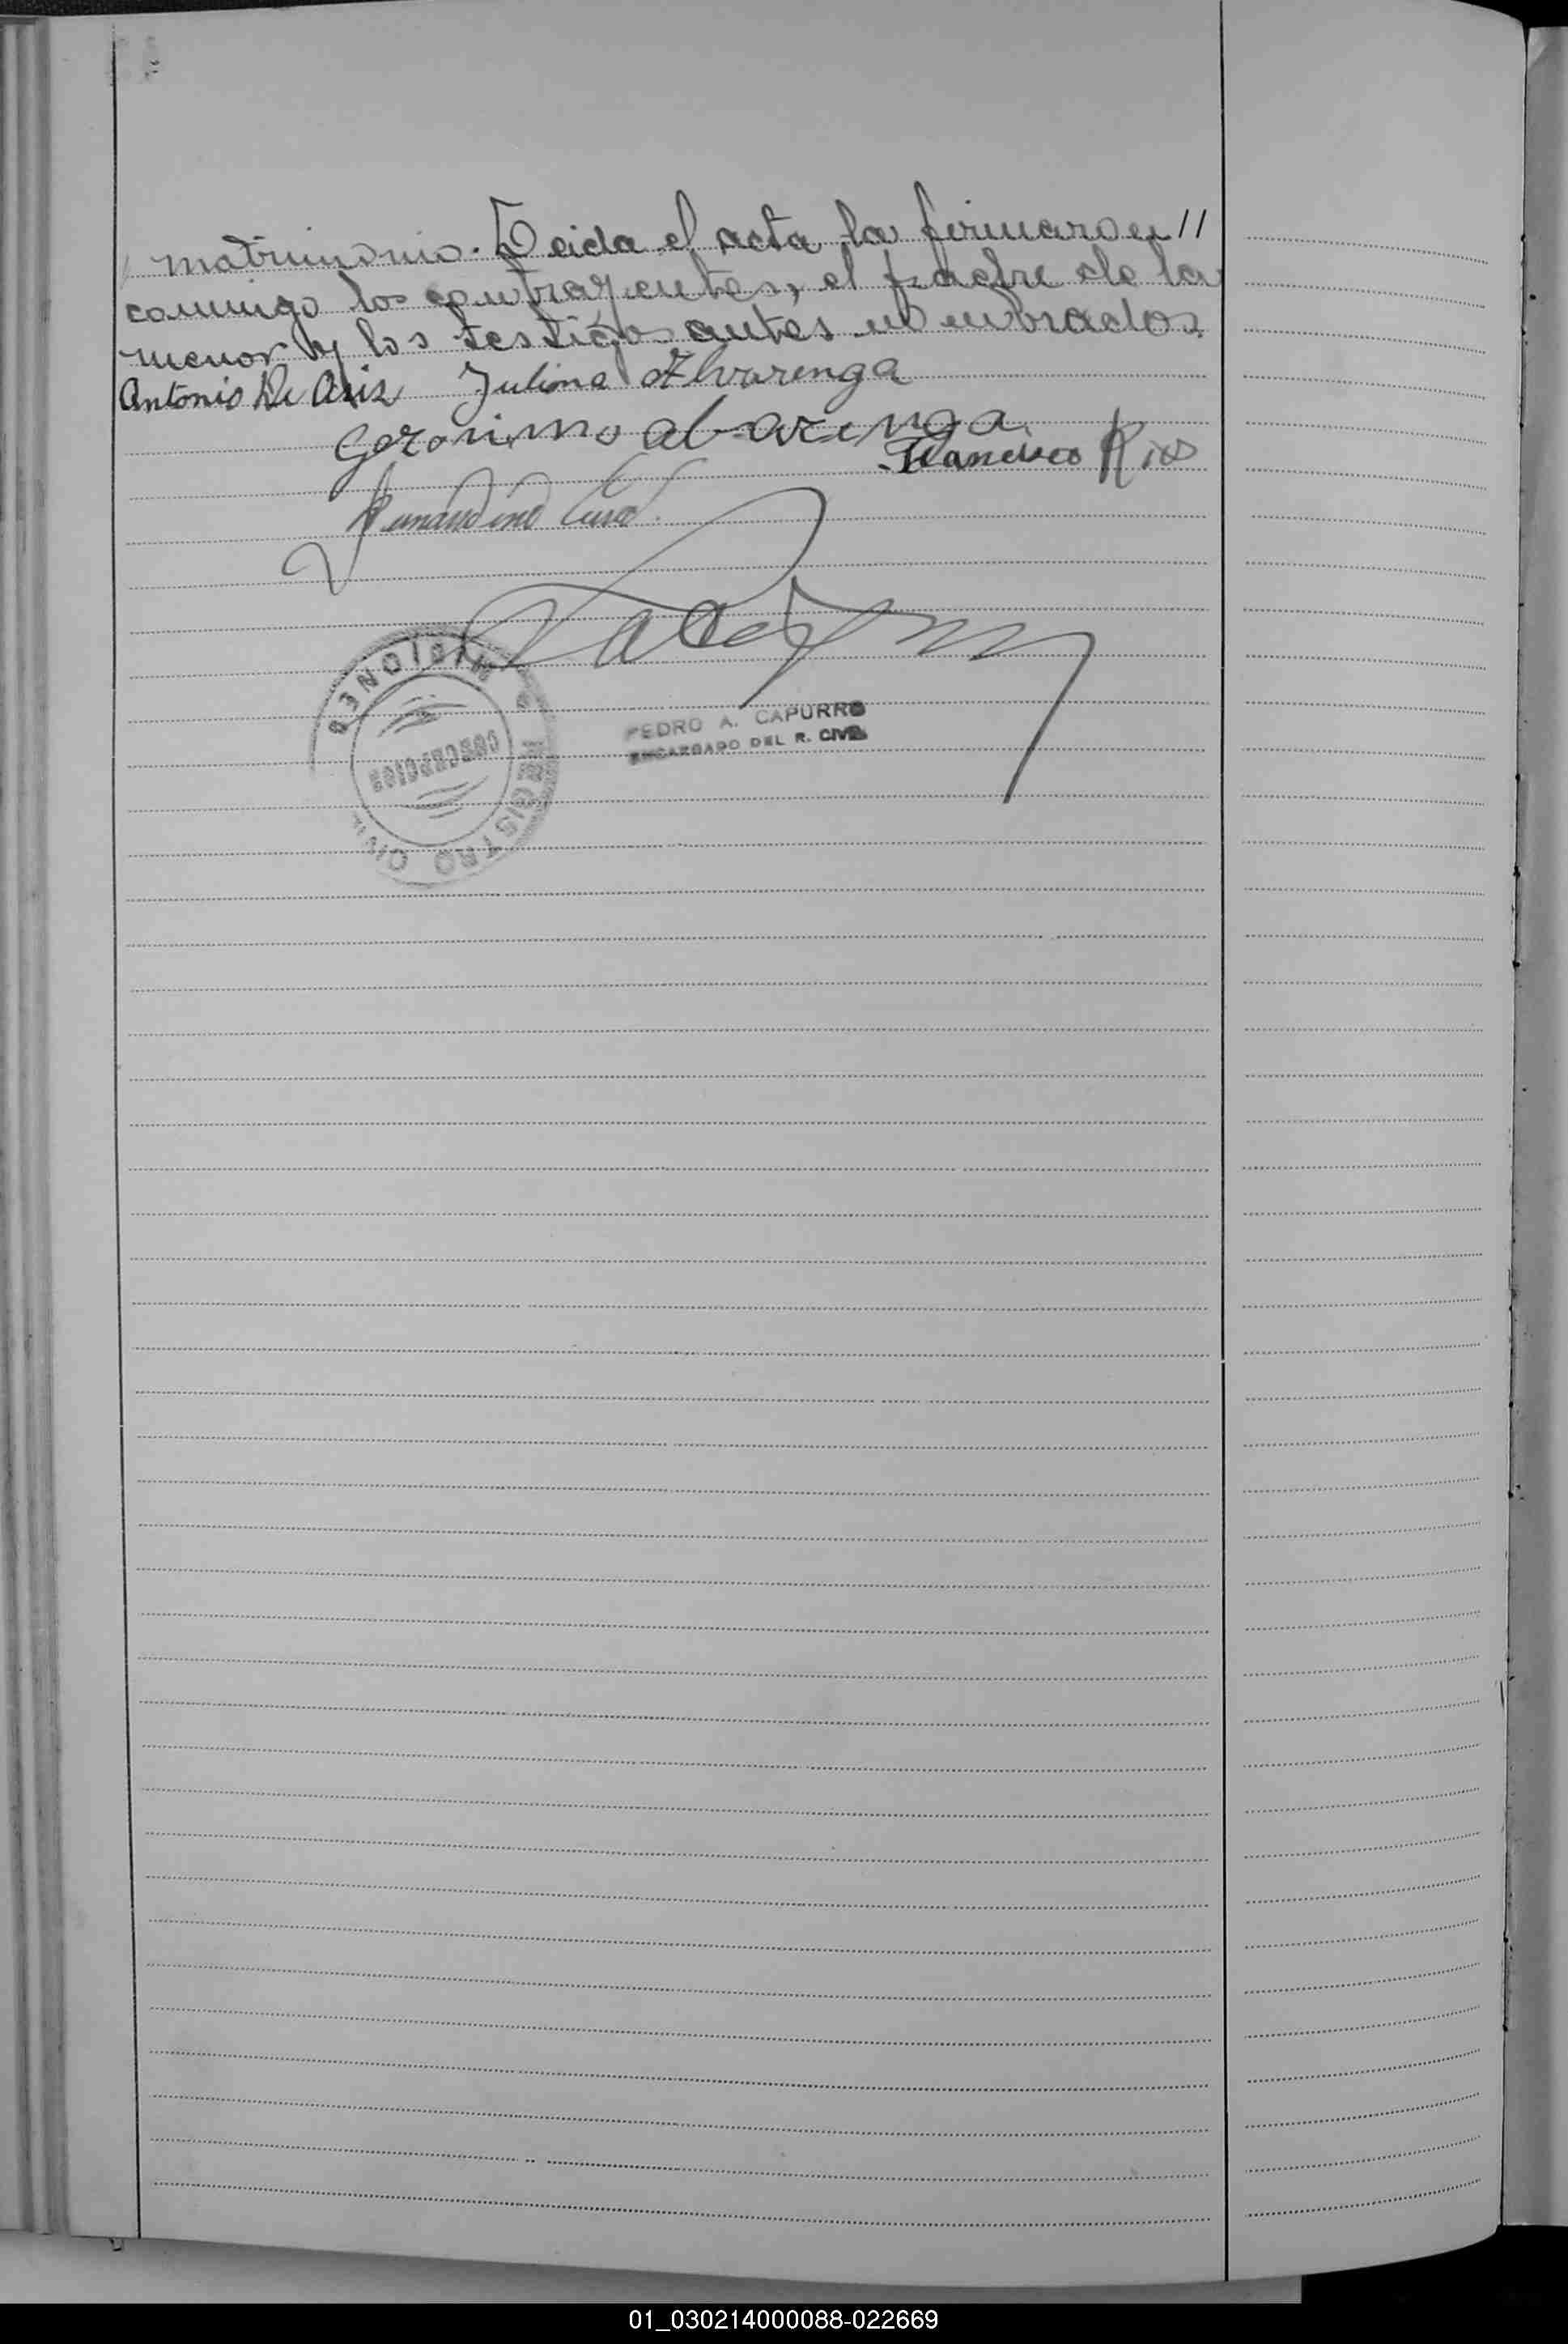 matrimonio. Leida el acta la firmaron //
conmigo los contrayentes, el padre de la
menor y los testigos antes nombrados.
Antonio De Asis Julima Alvarenga
Geronimo albarenga
Francisco Rios
MISIONES
REGISTRO CIVIL
PEDRO A. CAPURRO
ENCARGADO DEL R. CIVIL
01_030214000088-022669